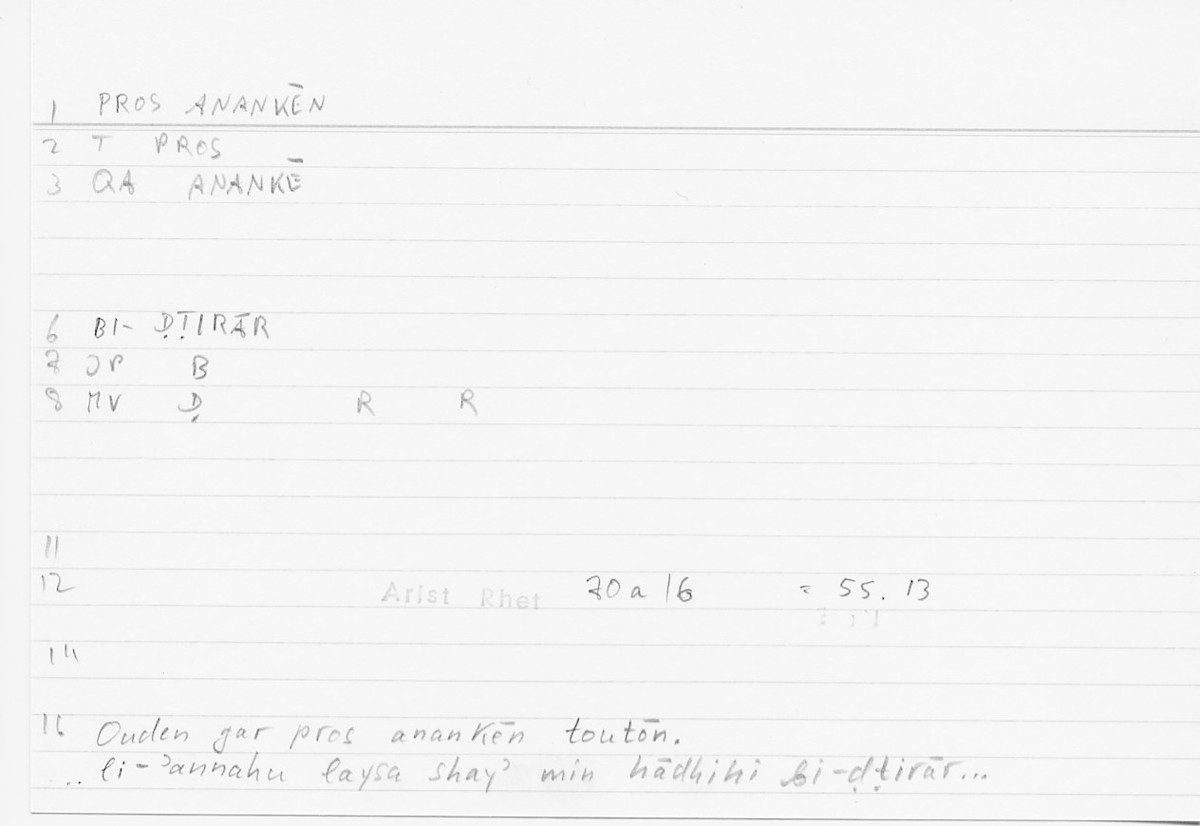 1 PROS ANANKĒN
2 T PROS
3 QA ANANKĒ
6 BI- ḌṬIRĀR
7 JP B
8 MV Ḍ R R
11
12 Arist Rhet 70a16 = 55.13
14
16 Ouden gar pros anankēn toutōn.
.. li-ʾannahu laysa shayʾ min hādhihi bi-ḍṭirār...